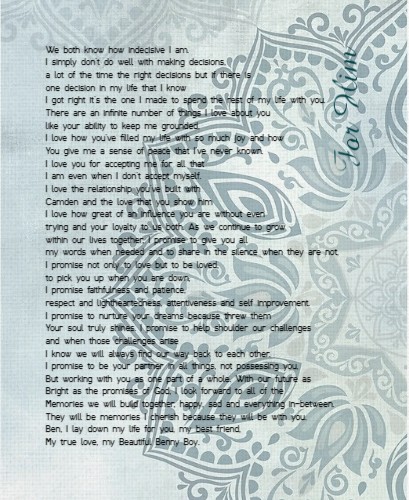 For Him
We both know how indecisive I am.
I simply don't do well with making decisions.
a lot of the time the right decisions but if there is
one decision in my life that I know
I got right it's the one I made to spend the rest of my life with you.
There are an infinite number of things I love about you
like your ability to keep me grounded.
I love how you've filled my life with so much joy and how
You give me a sense of peace that I've never known.
I love you for accepting me for all that
I am even when I don't accept myself.
I love the relationship you've built with
Camden and the love that you show him.
I love how great of an influence you are without even
trying and your loyalty to us both. As we continue to grow
within our lives together, I promise to give you all
my words when needed and to share in the silence when they are not.
I promise not only to love but to be loved.
to pick you up when you are down.
I promise faithfulness and patience,
respect and lightheartedness, attentiveness and self improvement.
I promise to nurture your dreams because threw them
Your soul truly shines. I promise to help shoulder our challenges
and when those challenges arise
I know we will always find our way back to each other.
I promise to be your partner in all things, not possessing you.
But working with you as one part of a whole. With our future as
Bright as the promises of God, I look forward to all of the
Memories we will build together, happy, sad and everything in-between.
They will be memories I cherish because they will be with you.
Ben, I lay down my life for you, my best friend,
My true love, my Beautiful, Benny Boy.